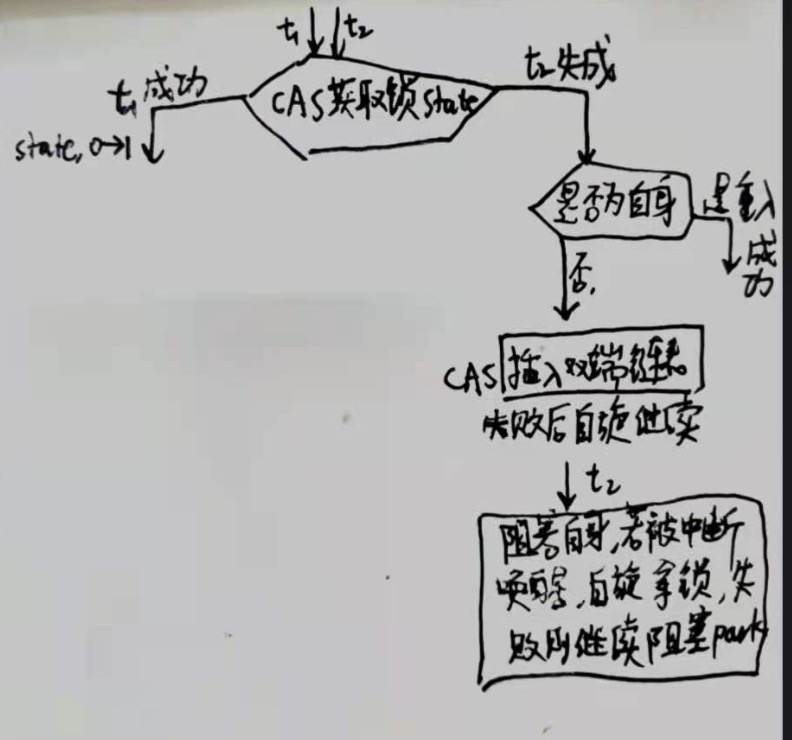 t₁ t₂
t₁成功
CAS获取锁state
t₂失败
state,0→1
是否为自身
是重入
成
功
否,
CAS
插入双端链表
失败后自旋继续
t₂
阻塞自身,若被中断
唤醒,自旋拿锁,失
败则继续阻塞park